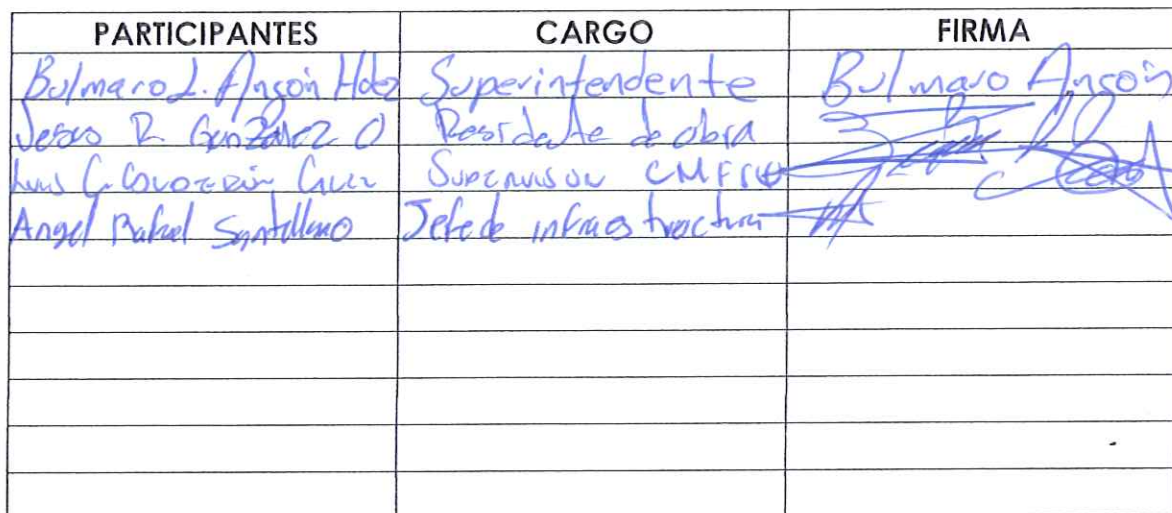 PARTICIPANTES CARGO FIRMA
Bulmaro L. Anzón Hdez Superintendente Bulmaro Anzón
Jesus R. González O Residente de obra
Luis G. Cruz Supervisor
Angel Rafael Santellano Jefe de infraestructura